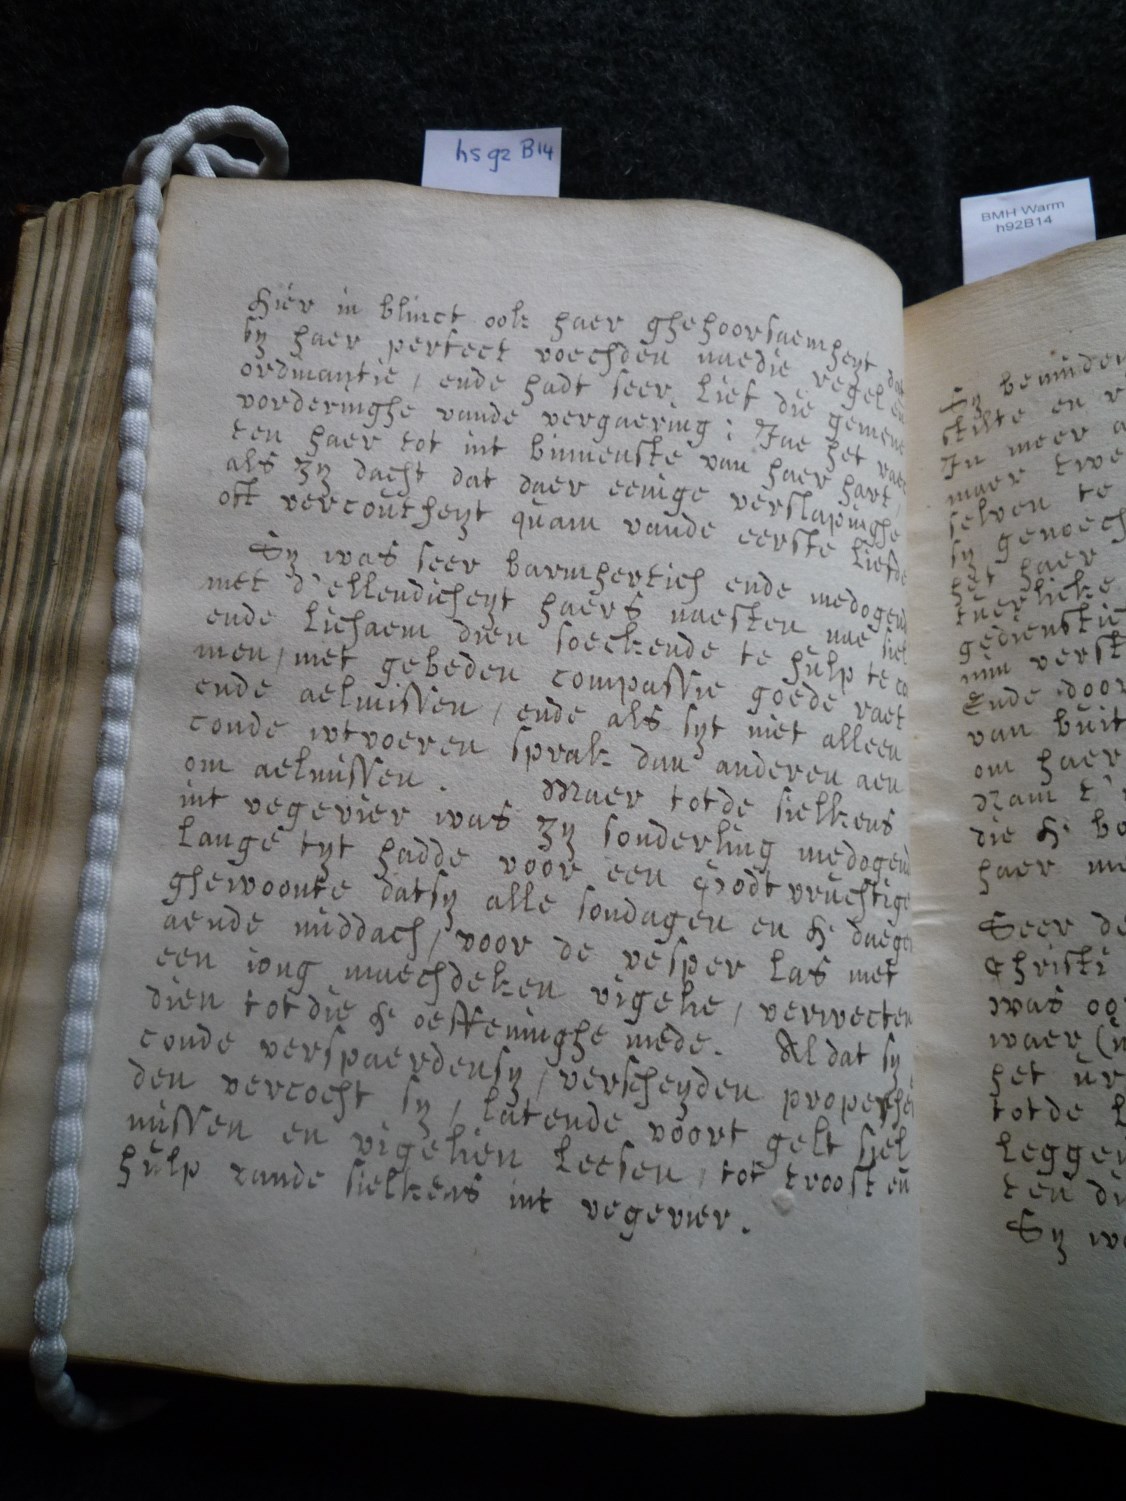 hs 92 B14
BMH Warm
h92B14
Hier in blinct ook haer ghehoorsaemheyt dat
sy haer perfect voechden naedie regel en
ordinantie, ende hadt seer lief die gemene
vorderinghe vande vergaering: Jae het raec
ten haer tot int binnenste van haer hart,
als zy dacht dat daer eenige verslapinghe
oft vercoutheyt quam vande eerste liefde
Sy was seer barmhertich ende medogend
met d'ellendicheyt haers naesten nae siel
ende lichaem dien soeckende te hulp te co
men, met gebeden compassie goede raet
ende aelmissen, ende als syt niet alleen
conde wtvoeren sprak dan anderen aen
om aelmissen. Maer totde sielkens
int vegevier was zy sonderling medogend
Lange tyt hadde voor een Godtvruchtige
ghewoonte datsy alle sondagen en H daegen
aende middach, voor de vesper las met
een iong maechdeken vigelie, verwecten
dien totdie H oeffeninghe mede. Al dat sy
conde verspaerdensy, verscheyden
den vercocht sy, latende voort gelt siel
missen en vigelien leesen, tot troost en
hulp vande sielkens int vegevier.
Sy beminden
stilte en
In meer
maer twe
selven te
sy genoech
het haer
tuerlicke
gedienstic
nim verst
Ende door
van buit
om haer
Nam t'
die H. bo
haer me
Seer de
Christi
was oo
waer
het
totde
Leggen
ten di
Sy wa